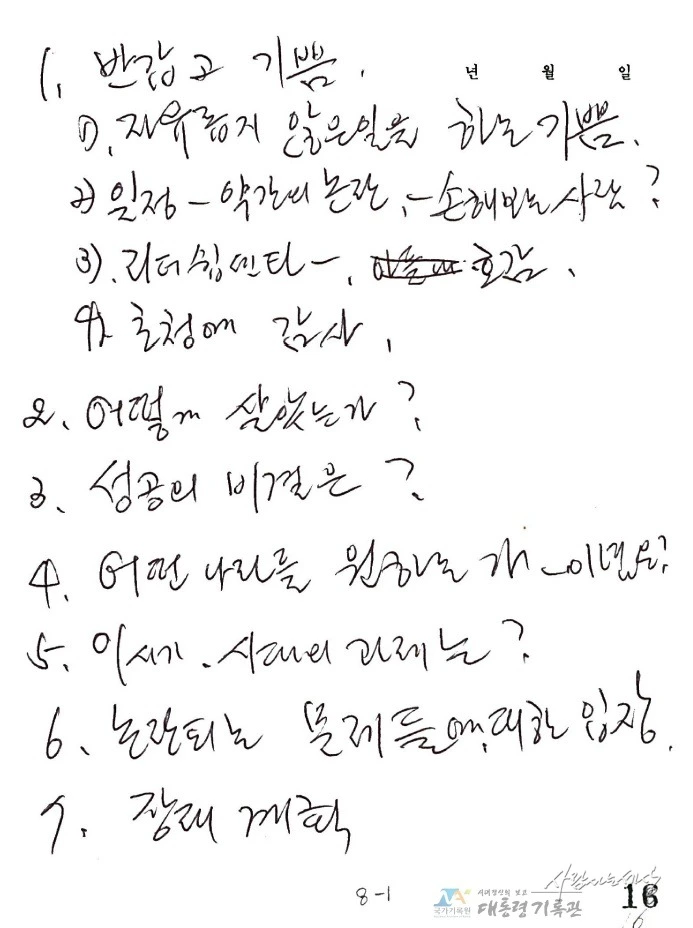 1. 반갑고 기쁨.
년 월 일
1). 자유롭지 않은 일을 하는 기쁨.
2) 일정 - 약간의 논란, - 손해보는 사람?
3). 리더쉽센타 -, 호감.
4) 초청에 감사.
2. 어떻게 살았는가?
3. 성공의 비결은?
4. 어떤 나라를 원하는가 -
5. 이 시기. 시대의 과제는?
6. 논란되는 문제들에 대한 입장.
7. 장래 계획
8-1
국가기록원 대통령기록관
사람사는세상
16
16